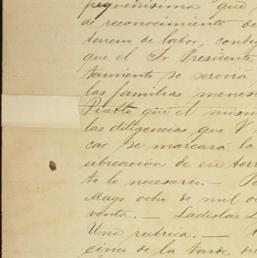 pequeñisima que
de reconocimiento de
terreno de labor, conti
que el Sr Presidente
tamiento se servira
las familias menes
Puesto que el mism
las diligencias que V
car se marcará la
ubicacion de ese terr
to lo necesario.— Po
Mayo ocho de mil oc
venta.— Ladislao L
Una rubrica.—
cinco de la tarde del